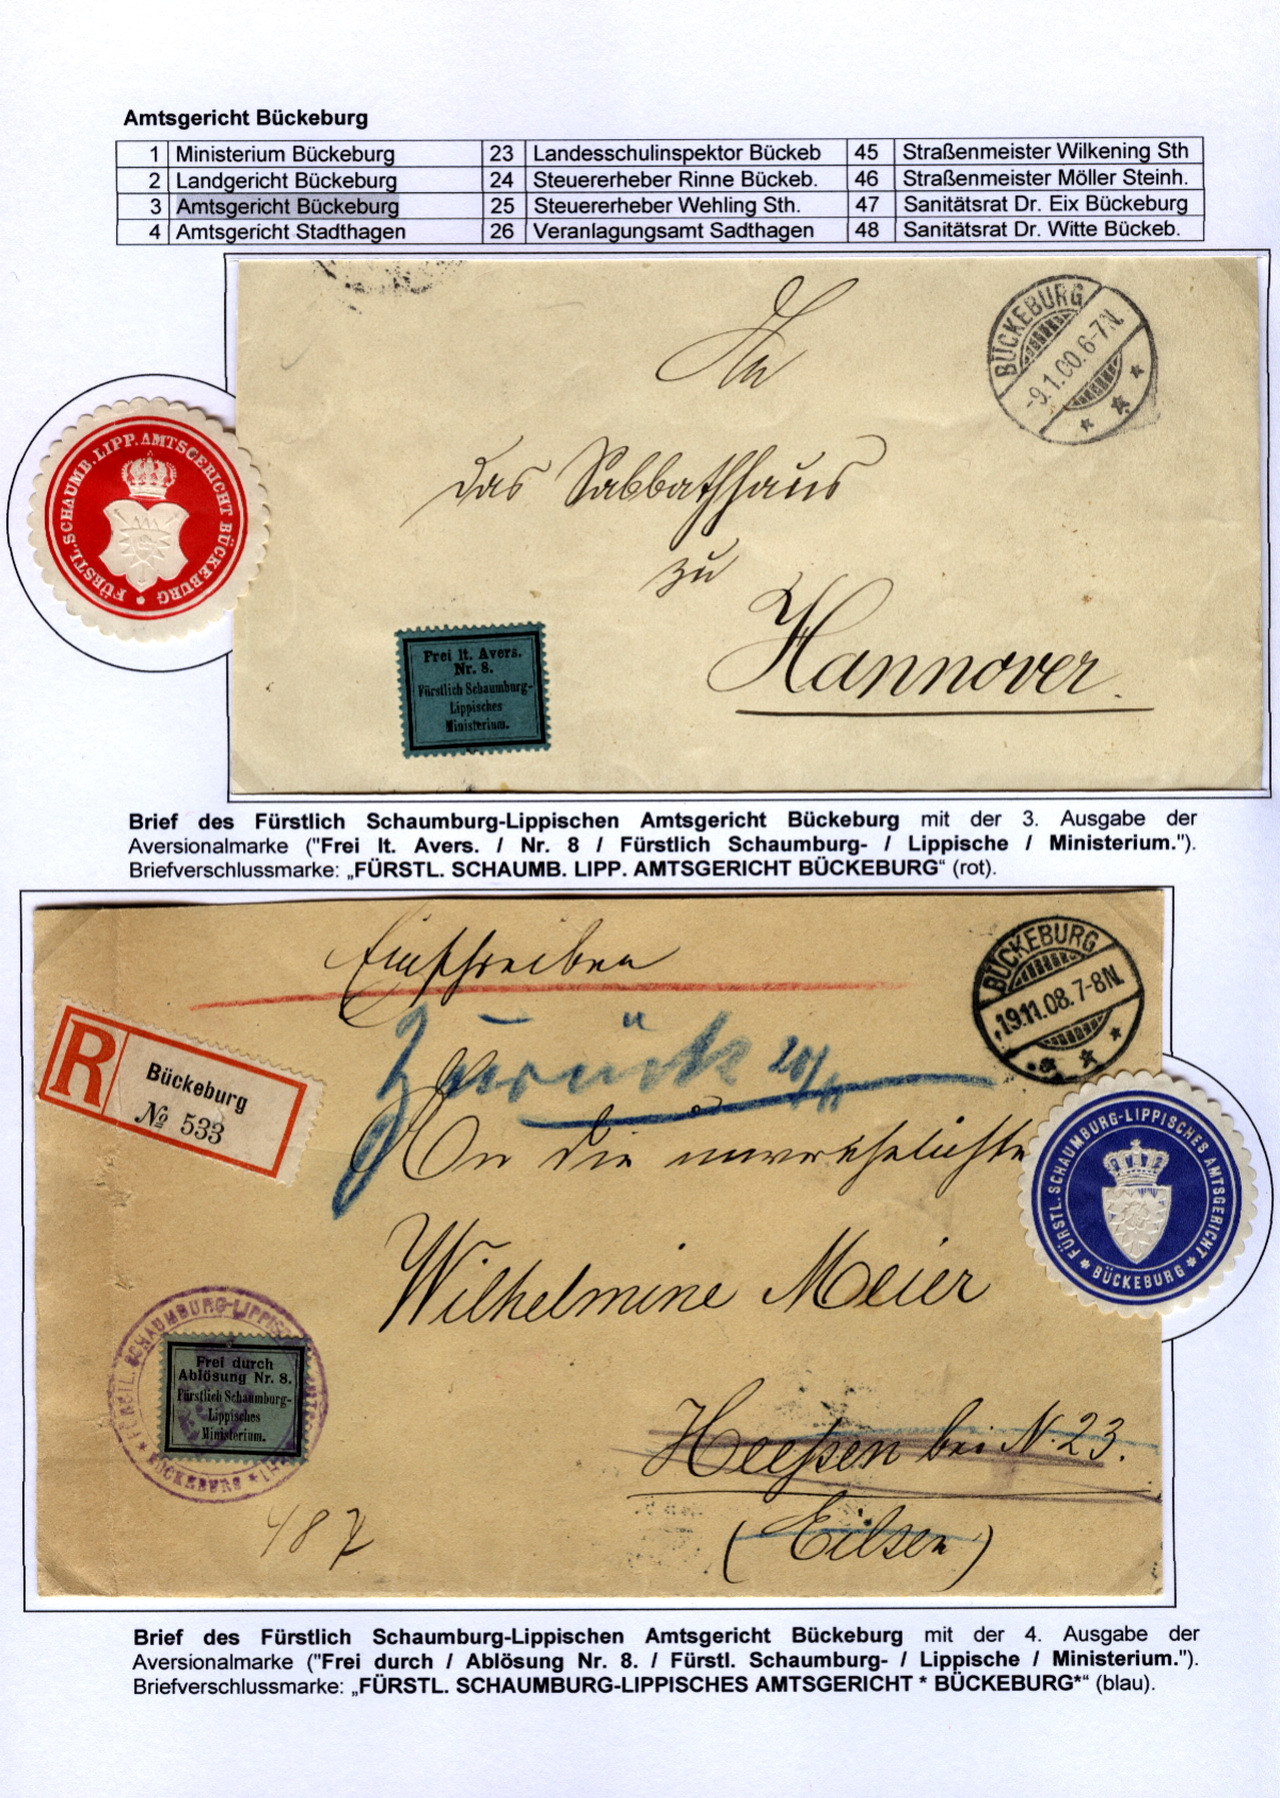 Amtsgericht Bückeburg
1 Ministerium Bückeburg 23 Landesschulinspektor Bückeb 45 Straßenmeister Wilkening Sth
2 Landgericht Bückeburg 24 Steuererheber Rinne Bückeb. 46 Straßenmeister Möller Steinh.
3 Amtsgericht Bückeburg 25 Steuererheber Wehling Sth. 47 Sanitätsrat Dr. Eix Bückeburg
4 Amtsgericht Stadthagen 26 Veranlagungsamt Sadthagen 48 Sanitätsrat Dr. Witte Bückeb.
BÜCKEBURG
-9.1.00.6-7N.
An
das Sabbathhaus
zu
Hannover.
FÜRSTL. SCHAUMB. LIPP. AMTSGERICHT BÜCKEBURG
Frei lt. Avers.
Nr. 8.
Fürstlich Schaumburg-
Lippisches
Ministerium.
Brief des Fürstlich Schaumburg-Lippischen Amtsgericht Bückeburg mit der 3. Ausgabe der
Aversionalmarke ("Frei lt. Avers. / Nr. 8 / Fürstlich Schaumburg- / Lippische / Ministerium.").
Briefverschlussmarke: „FÜRSTL. SCHAUMB. LIPP. AMTSGERICHT BÜCKEBURG“ (rot).
Einschreiben
BÜCKEBURG
19.11.08.7-8N.
Zurück 20/11
R Bückeburg
№ 533
An die unverehelichte
Wilhelmine Meier
FÜRSTL. SCHAUMBURG-LIPPISCHES AMTSGERICHT * BÜCKEBURG *
FÜRSTL. SCHAUMBURG-LIPPISCHES * BÜCKEBURG *
Frei durch
Ablösung Nr. 8.
Fürstlich Schaumburg-
Lippisches
Ministerium.
Heeßen bei N. 23.
(Eilsen)
Brief des Fürstlich Schaumburg-Lippischen Amtsgericht Bückeburg mit der 4. Ausgabe der
Aversionalmarke ("Frei durch / Ablösung Nr. 8. / Fürstl. Schaumburg- / Lippische / Ministerium.").
Briefverschlussmarke: „FÜRSTL. SCHAUMBURG-LIPPISCHES AMTSGERICHT * BÜCKEBURG*“ (blau).